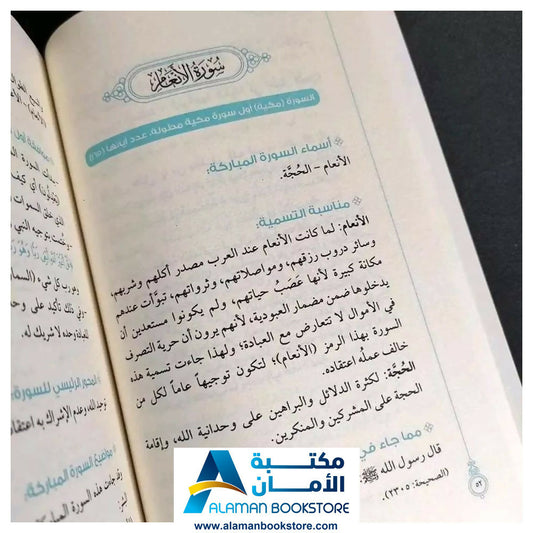 سورة الأنعام
السورة (مكية) أول سورة مكية مطولة، عدد آياتها (١٦٥)
أسماء السورة المباركة:
الأنعام – الحُجَّة.
مناسبة التسمية:
الأنعام: لما كانت الأنعام عند العرب مصدر أكلهم وشربهم،
وسائر دروب رزقهم، ومواصلاتهم، وثرواتهم، تبوَّأت عندهم
مكانة كبيرة لأنها عَصَبُ حياتهم، ولم يكونوا مستعدين أن
يدخلوها ضمن مضمار العبودية، لأنهم يرون أن حرية التصرف
في الأموال لا تتعارض مع العبادة؛ ولهذا جاءت تسمية هذه
السورة بهذا الرمز (الأنعام)؛ لتكون توجيهاً عاماً لكل من
خالف عملُه اعتقاده.
الحُجَّة: لكثرة الدلائل والبراهين على وحدانية الله، وإقامة
الحجة على المشركين والمنكرين.
مما جاء في
قال رسول الله ﷺ:
(الصحيحة: ٢٣٠٥).
٥٢
المحور الرئيسي للسورة:
توحيد الله، وعدم الإشراك به اعتقا
مواضيع السورة المباركة:
مكتبة
الأمان
ALAMAN BOOKSTORE
www.alamanbookstore.com